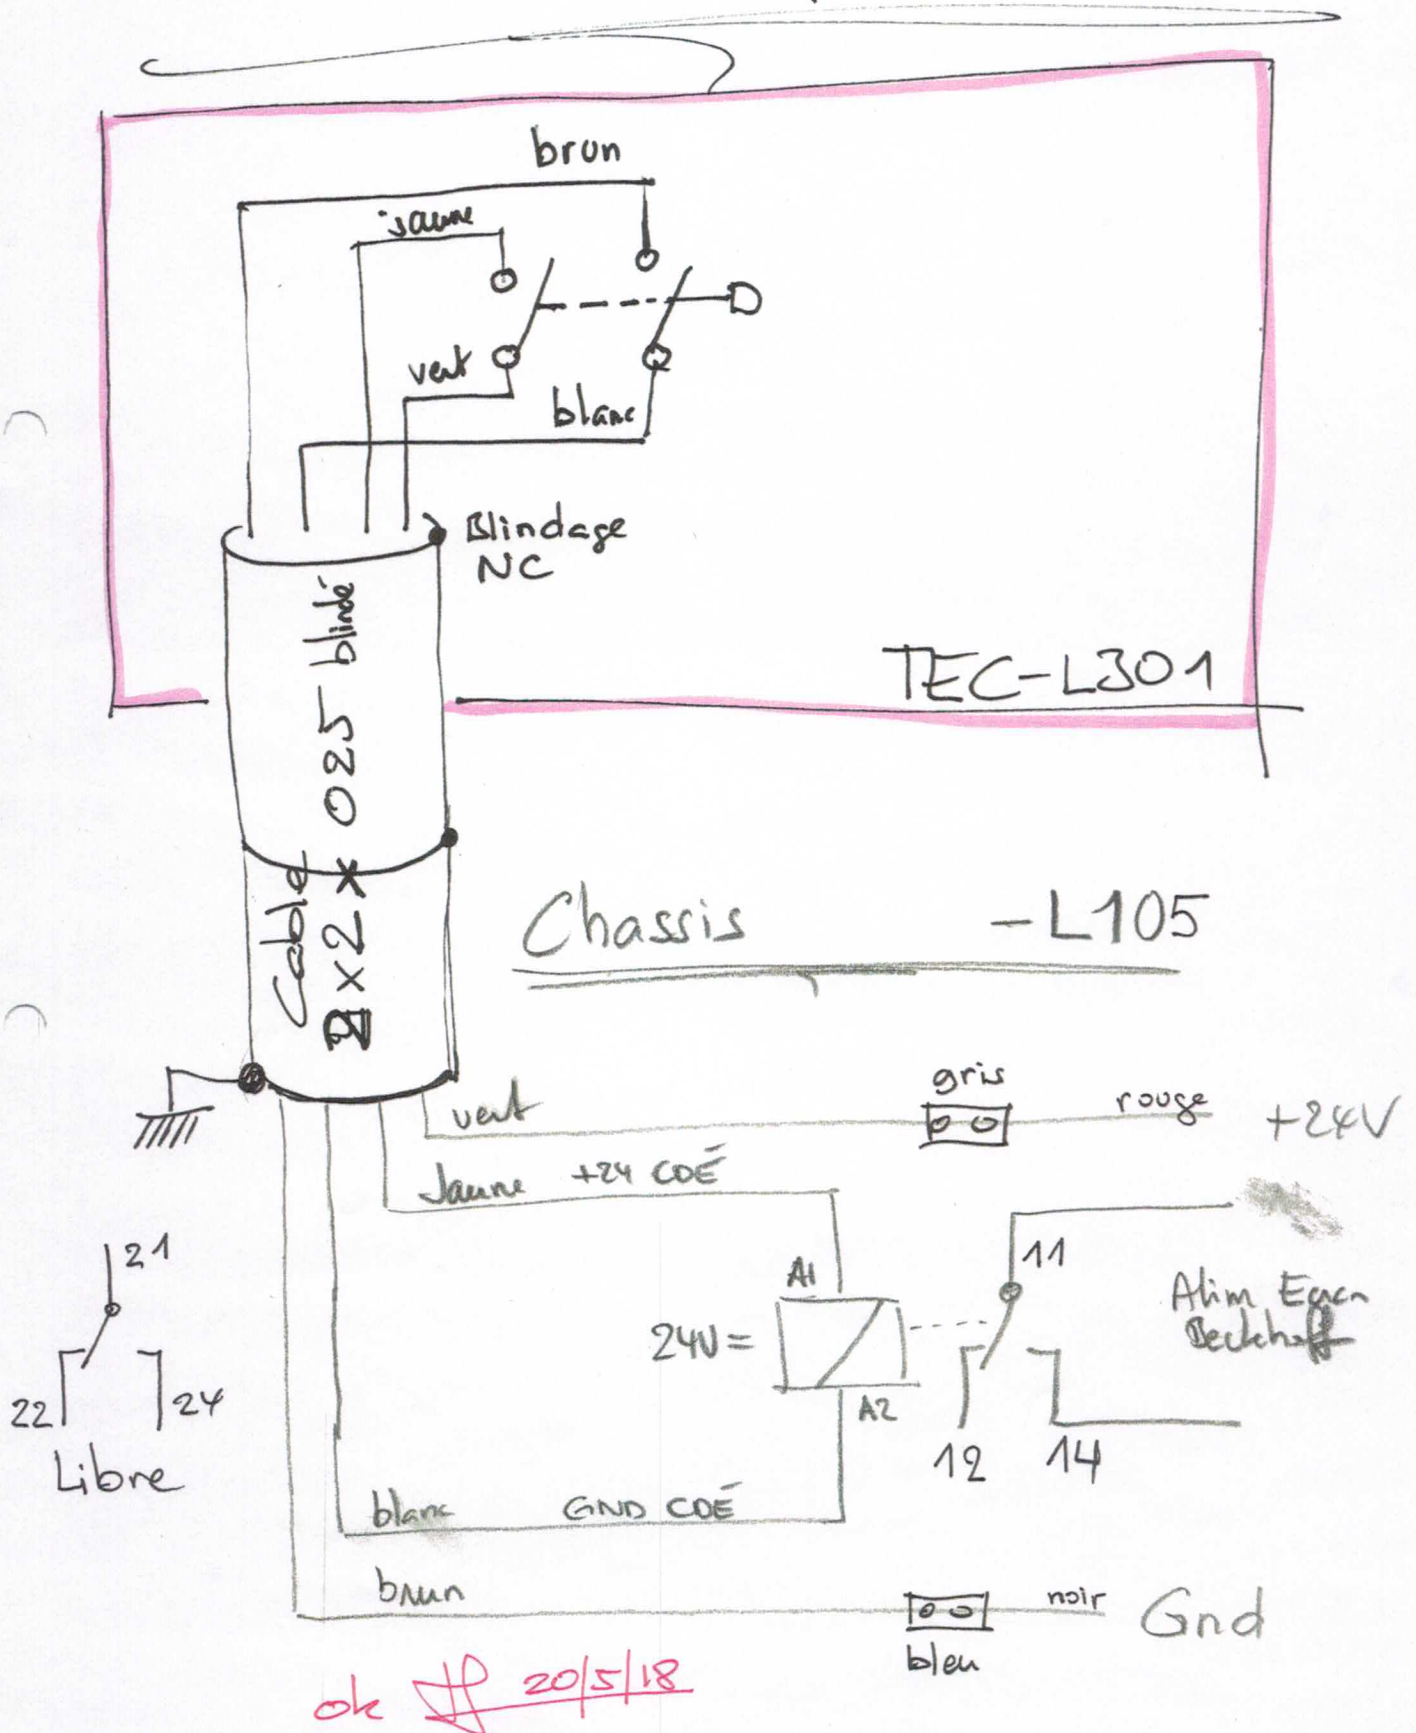 brun
jaune
vert
blanc
Blindage
NC
TEC-L301
Cable
2x2x025 blindé
Chassis -L105
gris
vert
rouge
+24V
Jaune +24 CDÉ
21
22
24
Libre
A1
24V=
A2
11
12
14
Alim
Beckhoff
blanc GND CDÉ
brun
noir
Gnd
bleu
ok
20/5/18